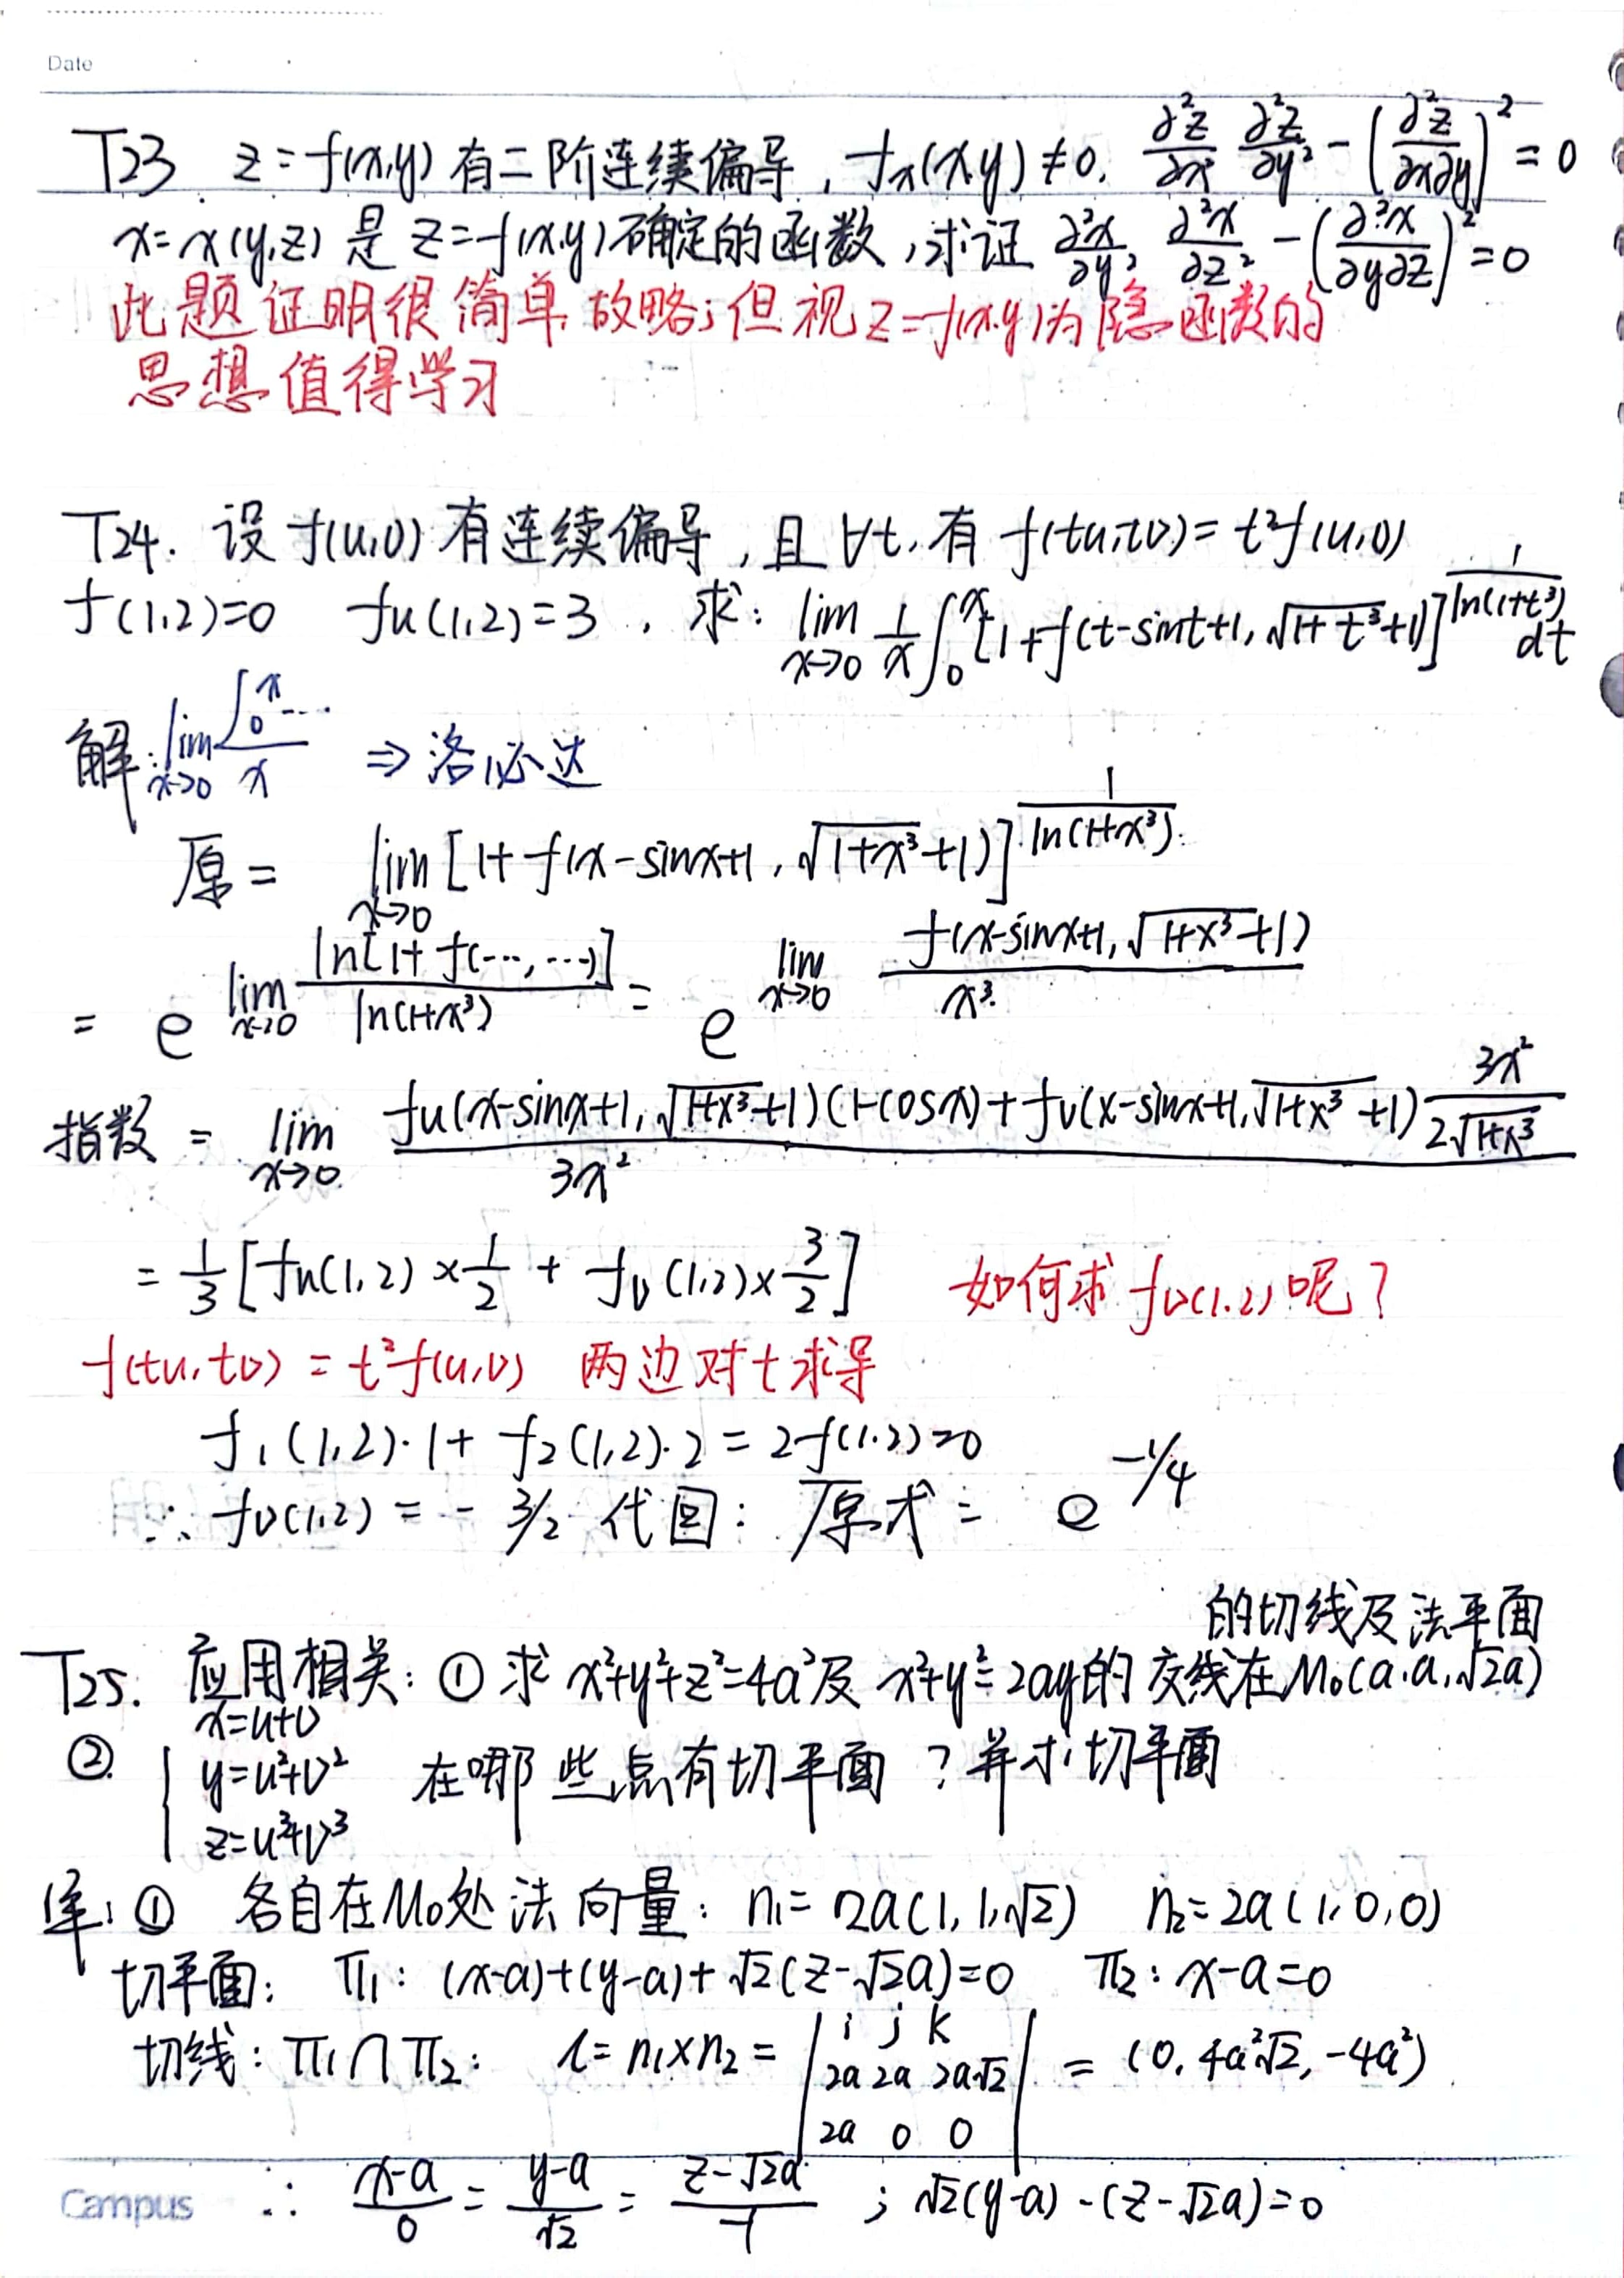 Date
T23 z=f(x,y)有二阶连续偏导，fx(x,y)≠0. ∂²z/∂x² ∂²z/∂y² - (∂²z/∂x∂y)² = 0
x=x(y,z)是z=f(x,y)确定的函数，求证 ∂²x/∂y² ∂²x/∂z² - (∂²x/∂y∂z)² = 0
此题证明很简单,故略;但视z=f(x,y)为隐函数的
思想值得学习
T24. 设f(u,v)有连续偏导，且∀t,有f(tu,tv)=t²f(u,v)
f(1,2)=0 fu(1,2)=3 ，求: lim x→0 1/x ∫₀ˣ[1+f(t-sint+1, √(1+t³)+1)]^(1/ln(1+t³)) dt
解: lim x→0 (∫₀ˣ…)/x ⇒ 洛必达
原= lim x→0 [1+f(x-sinx+1, √(1+x³)+1)]^(1/ln(1+x³))
= e^(lim x→0 ln[1+f(…,…)]/ln(1+x³)) = e^(lim x→0 f(x-sinx+1, √(1+x³)+1)/x³)
指数 = lim x→0 [fu(x-sinx+1, √(1+x³)+1)(1-cosx)+fv(x-sinx+1, √(1+x³)+1) 3x²/(2√(1+x³))]/3x²
= 1/3[fu(1,2)×1/2 + fv(1,2)×3/2] 如何求fv(1,2)呢?
f(tu,tv)=t²f(u,v) 两边对t求导
f₁(1,2)·1+f₂(1,2)·2=2f(1,2)=0
∴ fv(1,2) = - 3/2 代回: 原式= e^(-1/4)
的切线及法平面
T25. 应用相关: ① 求x²+y²+z²=4a²及x²+y²=2ay的交线在M₀(a,a,√2a)
② { x=u+v
y=u²+v² 在哪些点有切平面?并求切平面
z=u³+v³
解: ① 各自在M₀处法向量: n₁=2a(1,1,√2) n₂=2a(1,0,0)
切平面: π₁: (x-a)+(y-a)+√2(z-√2a)=0 π₂: x-a=0
切线: π₁∩π₂: l=n₁×n₂= | i j k
2a 2a 2a√2 | = (0, 4a²√2, -4a²)
2a 0 0 |
∴ (x-a)/0 = (y-a)/√2 = (z-√2a)/-1 ; √2(y-a)-(z-√2a)=0
Campus